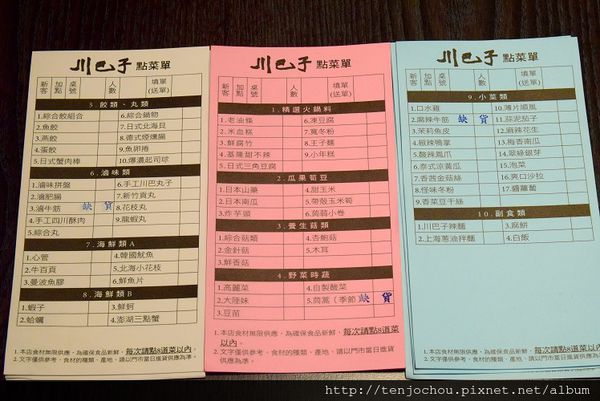 川巴子 點菜單
新客 加點 桌號 人數 填單(送單)
5.餃類、丸類
1.綜合餃組合 6.綜合鍋物
2.魚餃 7.日式北海貝
3.燕餃 8.德式煙燻腸
4.蛋餃 9.魚卵捲
5.日式蟹肉棒 10.爆濃起司球
6.滷味類
1.滷味拼盤 6.手工川巴丸子
2.滷肥腸 7.新竹貢丸
3.滷牛筋 缺貨 8.花枝丸
4.手工四川酥肉 9.龍蝦丸
5.綜合丸
7.海鮮類A
1.心管 4.韓國魷魚
2.牛百頁 5.北海小花枝
3.曼波魚膠 6.鮮魚片
8.海鮮類B
1.蝦子 3.鮮蚵
2.蛤蠣 4.澎湖三點蟹
1.本店食材無限供應，為確保食品新鮮，每次請點8道菜以內。
2.文字僅供參考，食材的種類、產地，請以門市當日進貨供應為準。
川巴子 點菜單
新客 加點 桌號 人數 填單(送單)
1.精選火鍋料
1.老油條 6.凍豆腐
2.米血糕 7.寬冬粉
3.鮮腐竹 8.王子麵
4.基隆甜不辣 9.小年糕
5.日式三角豆腐
2.瓜果筍豆
1.日本山藥 4.甜玉米
2.日本南瓜 5.帶殼玉米筍
3.炸芋頭 6.蒟蒻小卷
3.養生菇類
1.綜合菇類 4.杏鮑菇
2.金針菇 5.木耳
3.鮮香菇
4.野菜時蔬
1.高麗菜 4.自製酸菜
2.大陸妹 5.茼蒿(季節 缺貨
3.豆苗
1.本店食材無限供應，為確保食品新鮮，每次請點8道菜以內。
2.文字僅供參考，食材的種類、產地，請以門市當日進貨供應為準。
川巴子 點菜單
新客 加點 桌號 人數 填單(送單)
9.小菜類
1.口水雞 10.薄片順風
2.麻辣牛筋 缺貨 11.蒜泥茄子
3.茉莉魚皮 12.麻辣花生
4.椒辣鴨掌 13.梅香苦瓜
5.酸辣鳳爪 14.翠綠銀芽
6.泰式涼黃瓜 15.泡菜
7.香茜金菇絲 16.爽口沙拉
8.怪味冬粉 17.醬蘿蔔
9.香菜豆干絲
10.副食類
1.川巴子辣麵 3.腐餅
2.上海蔥油拌麵 4.白飯
1.本店食材無限供應，為確保食品新鮮，每次請點8道菜以內。
2.文字僅供參考，食材的種類、產地，請以門市當日進貨供應為準。
http://tenjochou.pixnet.net/album